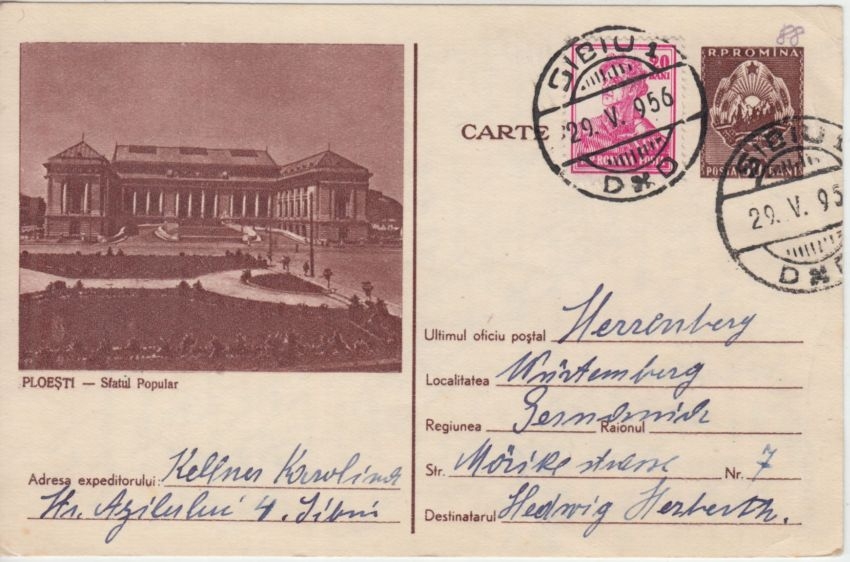 88
R.P.ROMÎNA
20
BANI
CARTE
POSTA
BANI
SIBIU 1
29. V. 956
D
SIBIU 1
29. V. 95
D
PLOEȘTI — Sfatul Popular
Ultimul oficiu poștal Herrenberg
Localitatea Würtemberg
Regiunea Raionul
Str. Mörike strasse Nr. 7
Destinatarul Hedwig Herberth.
Adresa expeditorului: Kellner Karolina
Str. Azilului 4. Sibiu